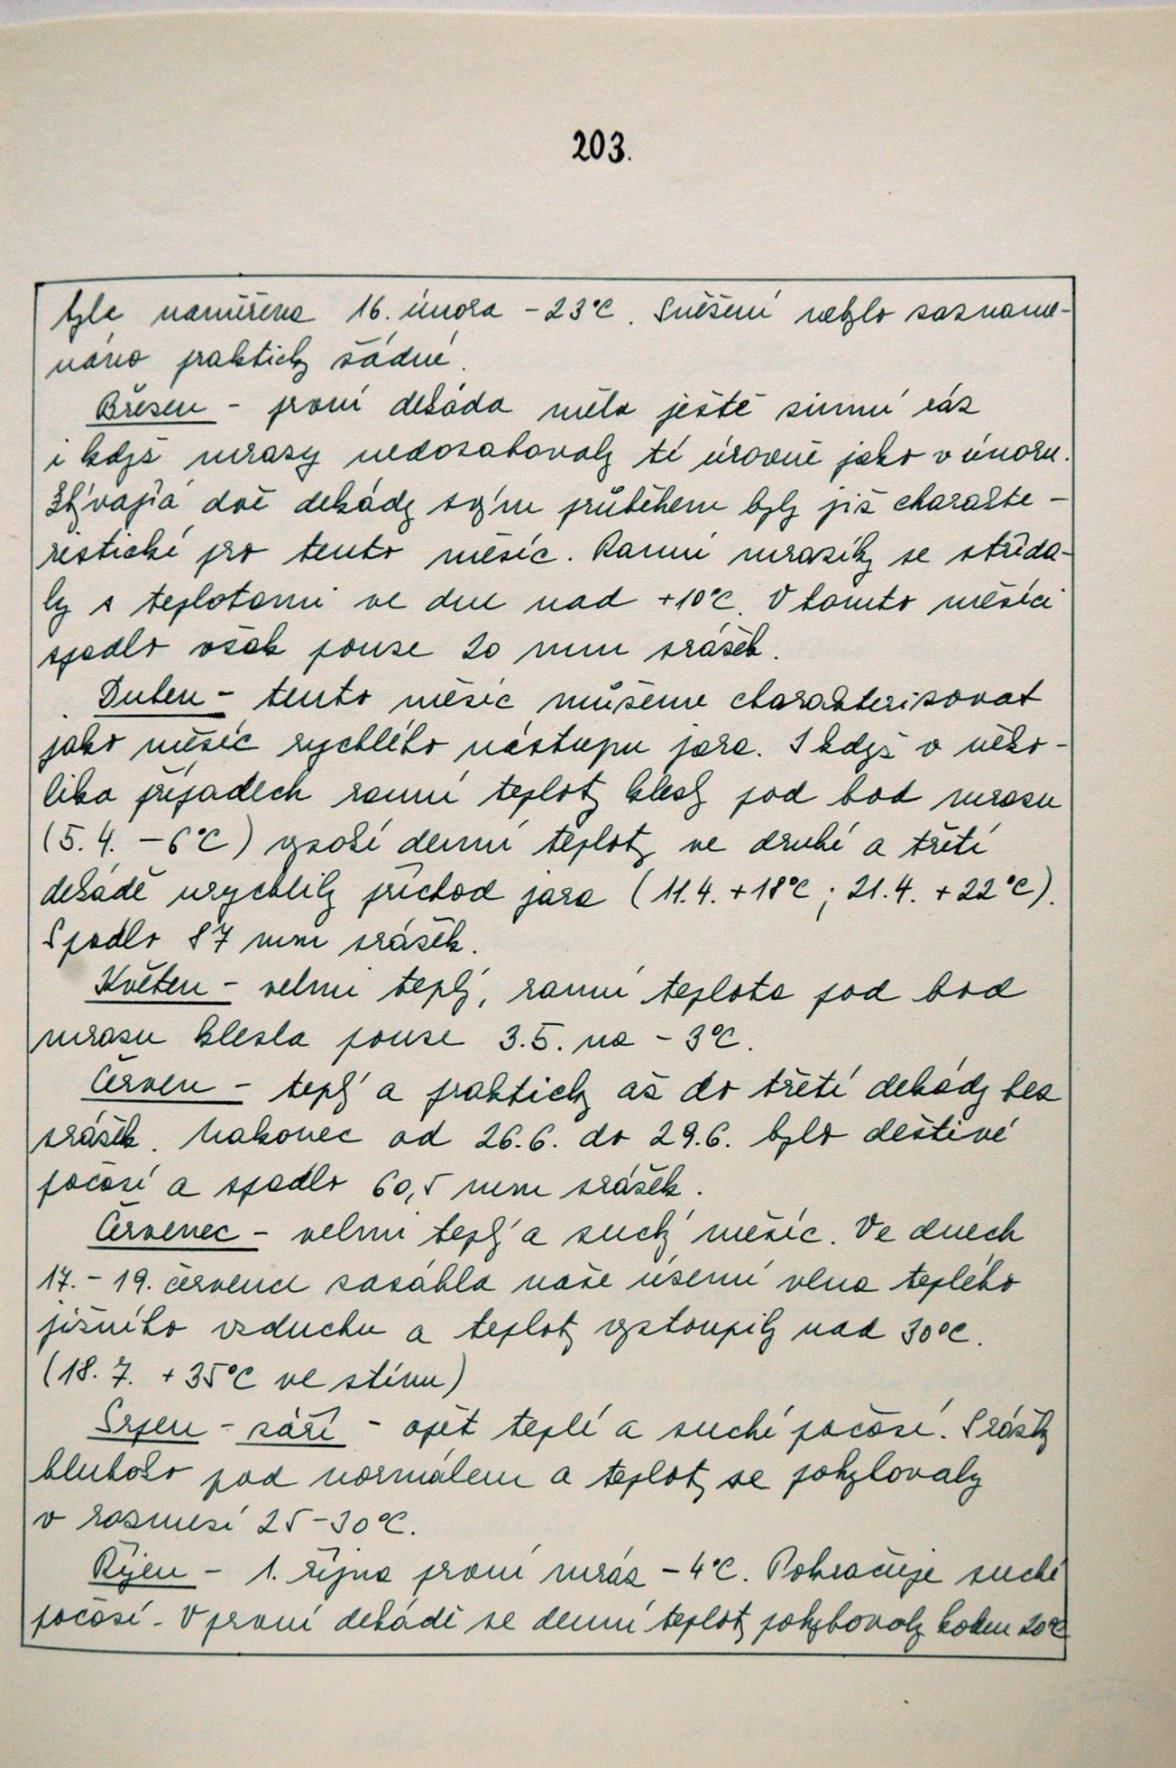 203.
byla naměřena 16. února - 23°C. Sněžení nebylo zazname-
náno prakticky žádné.
Březen - první dekáda měla ještě zimní ráz
i když mrazy nedosahovaly té úrovně jako v únoru.
Zbývající dvě dekády svým průběhem byly již charakte-
ristické pro tento měsíc. Ranní mrazíky se střída-
ly s teplotami ve dne nad +10°C. V tomto měsíci
spadlo však pouze 20 mm srážek.
Duben - tento měsíc můžeme charakterizovat
jako měsíc rychlého nástupu jara. I když v něko-
lika případech ranní teploty klesly pod bod mrazu
(5. 4. - 6°C) vysoké denní teploty ve druhé a třetí
dekádě urychlily příchod jara (11.4. +18°C; 21.4. +22°C).
Spadlo 87 mm srážek.
Květen - velmi teplý, ranní teplota pod bod
mrazu klesla pouze 3.5. na - 3°C.
Červen - teplý a prakticky až do třetí dekády bez
srážek. Nakonec od 26.6. do 29.6. bylo deštivé
počasí a spadlo 60,5 mm srážek.
Červenec - velmi teplý a suchý měsíc. Ve dnech
17. - 19. července zasáhla naše území vlna teplého
jižního vzduchu a teploty vystoupily nad 30°C.
(18. 7. + 35°C ve stínu)
Srpen - září - opět teplé a suché počasí. Srážky
hluboko pod normálem a teploty se pohybovaly
v rozmezí 25-30°C.
Říjen - 1. října první mráz - 4°C. Pokračuje suché
počasí. V první dekádě se denní teploty pohybovaly kolem 20°C